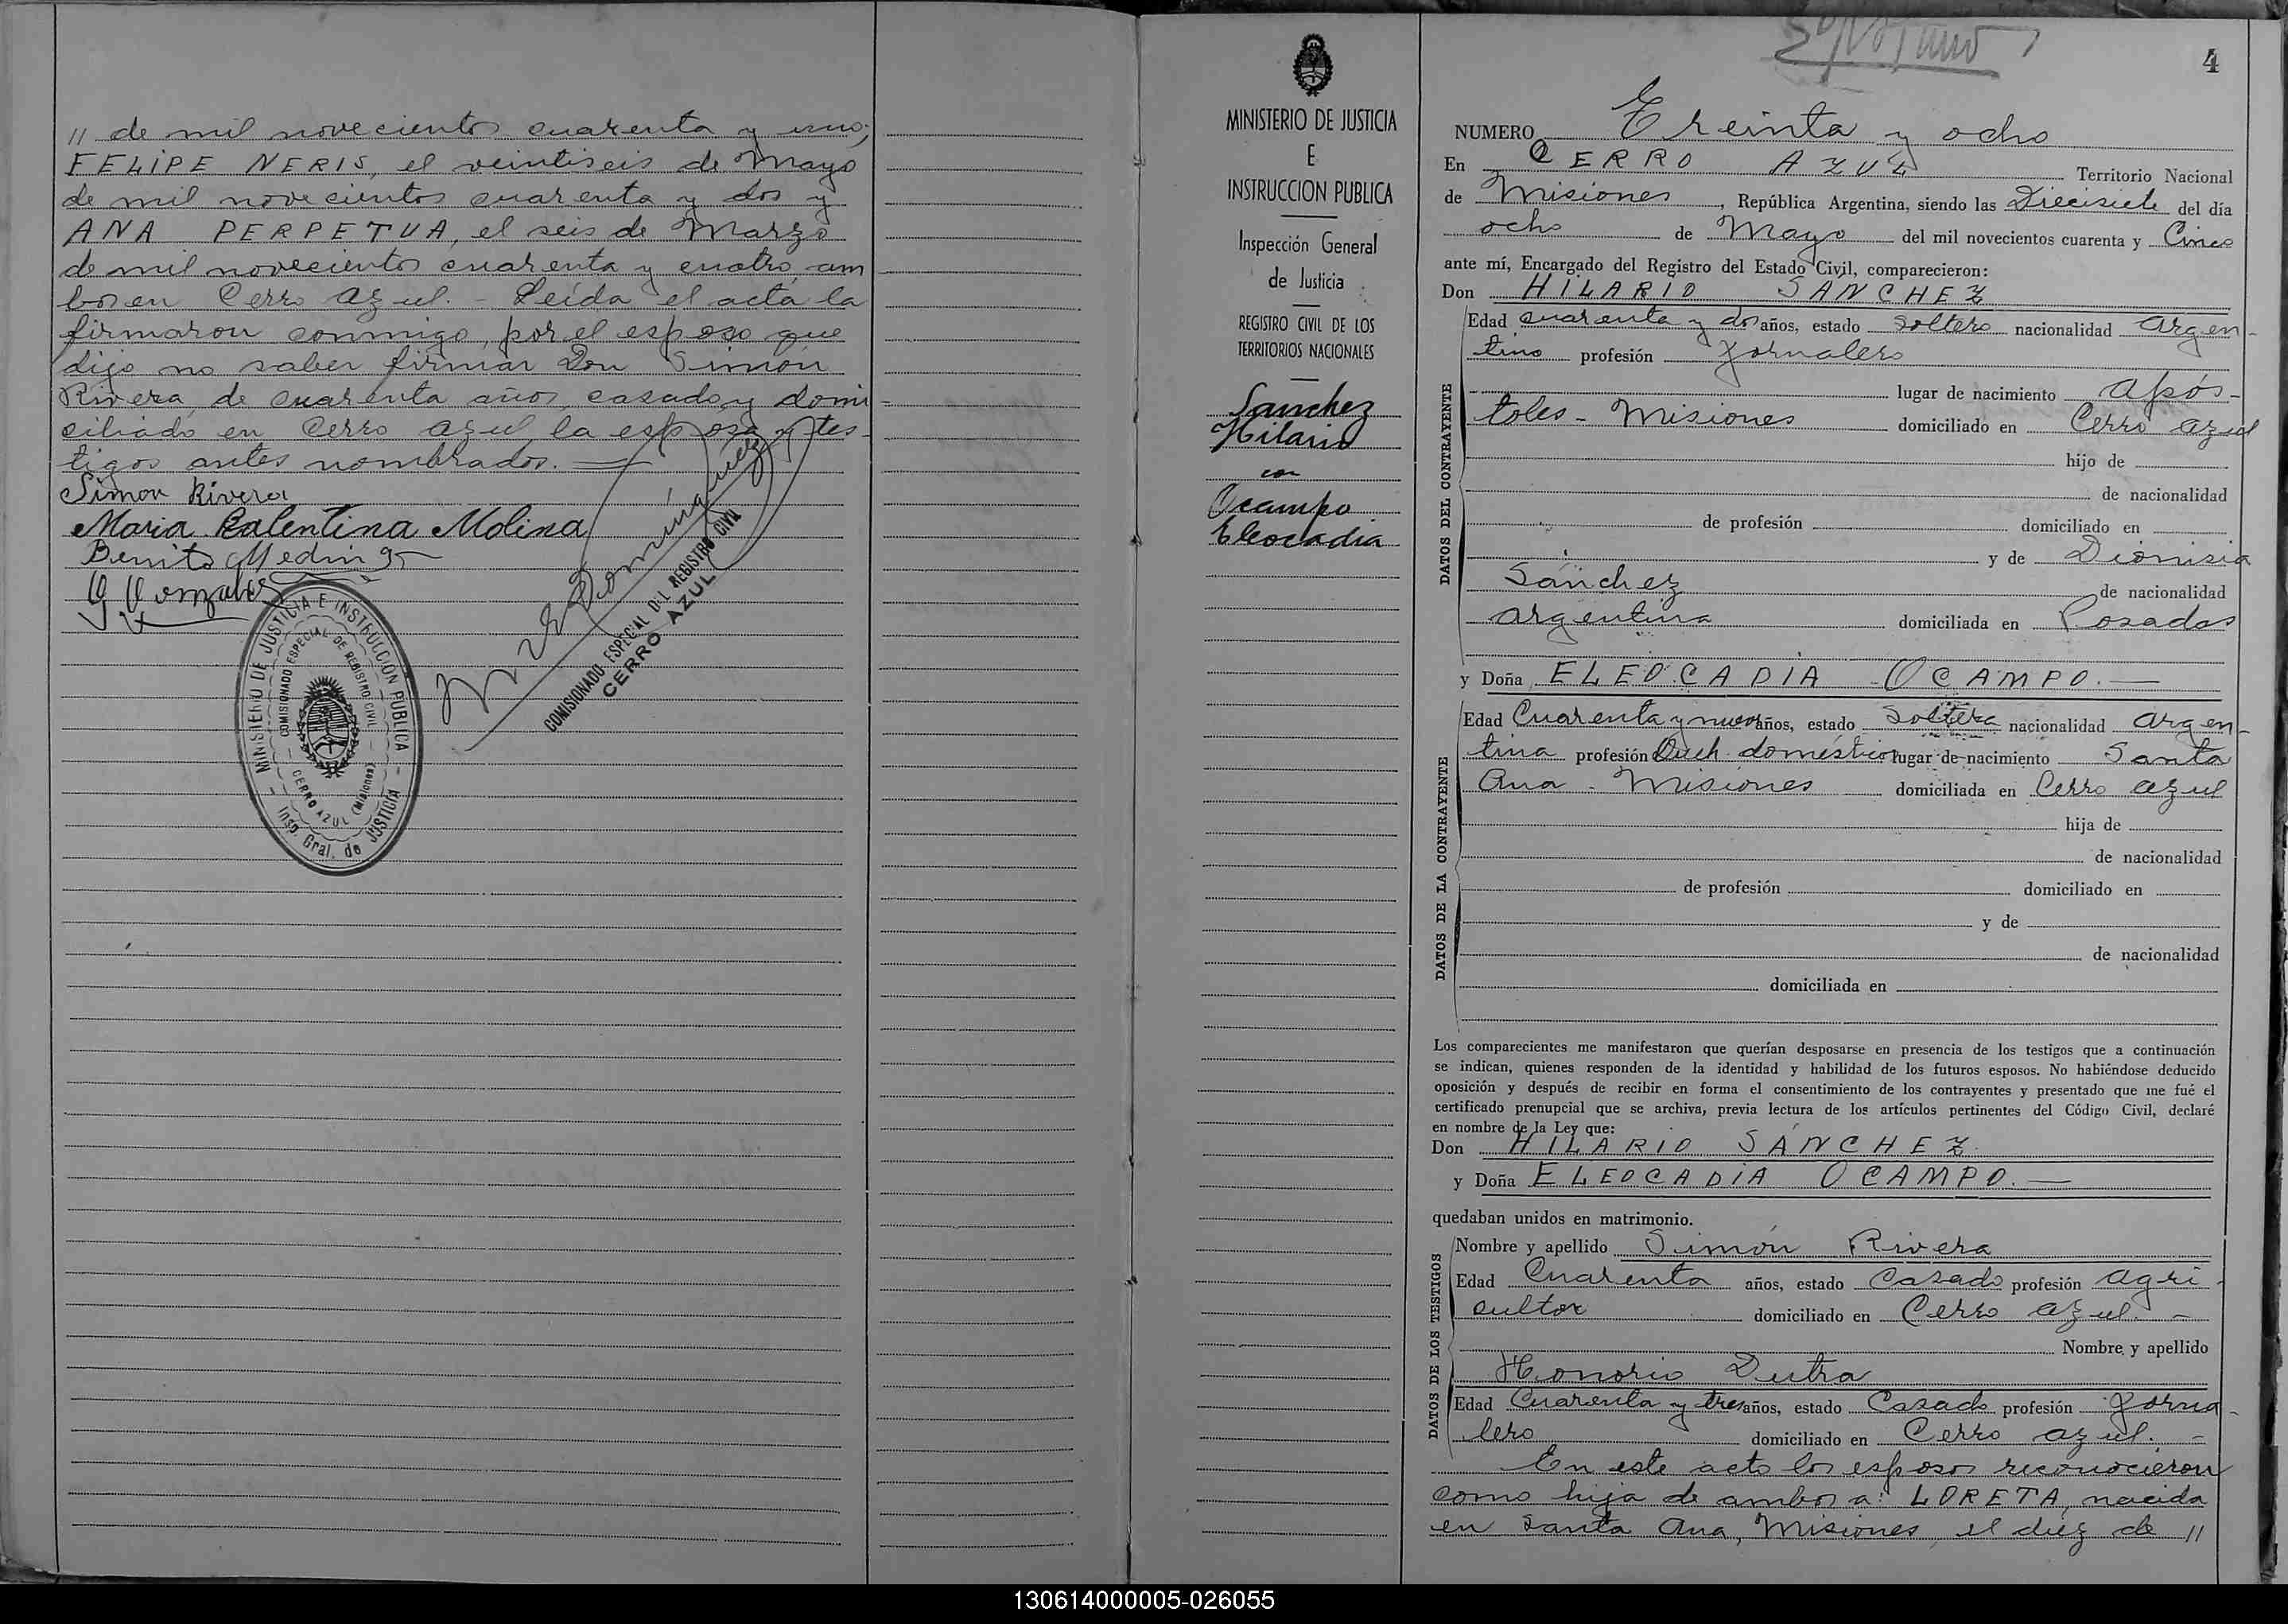 // de mil novecientos cuarenta y uno;
FELIPE NERIS, el veintiseis de Mayo
de mil novecientos cuarenta y dos y
ANA PERPETUA, el seis de Marzo
de mil novecientos cuarenta y cuatro, am
bos en Cerro Azul. - Leída el acta la
firmaron conmigo, por el esposo que
dijo no saber firmar Don Simón
Rivera, de cuarenta años, casado y domi
ciliado en Cerro Azul la esposa y tes-
tigos antes nombrados.
Simon Rivera
Maria Balentina Molina
Benito Medina
G Gonzalez
COMISIONADO ESPECIAL DEL REGISTRO CIVIL
CERRO AZUL
MINISTERIO DE JUSTICIA E INSTRUCCIÓN PUBLICA
COMISIONADO ESPECIAL DE REGISTRO CIVIL
CERRO AZUL (Misiones)
- Insp. Gral. de JUSTICIA -
MINISTERIO DE JUSTICIA
E
INSTRUCCION PUBLICA
Inspección General
de Justicia
REGISTRO CIVIL DE LOS
TERRITORIOS NACIONALES
Sanchez
Hilario
con
Ocampo
Eleocadia
4
NUMERO Treinta y ocho
En CERRO AZUL Territorio Nacional
de Misiones, República Argentina, siendo las Diecisiete del día
ocho de Mayo del mil novecientos cuarenta y Cinco
ante mí, Encargado del Registro del Estado Civil, comparecieron:
Don HILARIO SANCHEZ
DATOS DEL CONTRAYENTE
Edad cuarenta y dos años, estado soltero nacionalidad Argen-
tino profesión Jornalero
lugar de nacimiento Após-
toles - Misiones domiciliado en Cerro Azul
hijo de
de nacionalidad
de profesión domiciliado en
y de Dionisia
Sánchez de nacionalidad
argentina domiciliada en Posadas
y Doña ELEOCADIA OCAMPO. -
DATOS DE LA CONTRAYENTE
Edad Cuarenta y nueve años, estado Soltera nacionalidad Argen-
tina profesión Queh. doméstico lugar de nacimiento Santa
Ana - Misiones domiciliada en Cerro Azul
hija de
de nacionalidad
de profesión domiciliado en
y de
de nacionalidad
domiciliada en
Los comparecientes me manifestaron que querían desposarse en presencia de los testigos que a continuación
se indican, quienes responden de la identidad y habilidad de los futuros esposos. No habiéndose deducido
oposición y después de recibir en forma el consentimiento de los contrayentes y presentado que me fué el
certificado prenupcial que se archiva, previa lectura de los artículos pertinentes del Código Civil, declaré
en nombre de la Ley que:
Don HILARIO SÁNCHEZ
y Doña ELEOCADIA OCAMPO. -
quedaban unidos en matrimonio.
DATOS DE LOS TESTIGOS
Nombre y apellido Simón Rivera
Edad Cuarenta años, estado Casado profesión Agri-
cultor domiciliado en Cerro Azul. -
Nombre y apellido
Honorio Dutra
Edad Cuarenta y tres años, estado Casado profesión Jorna-
lero domiciliado en Cerro Azul. -
En este acto los esposos reconocieron
como hija de ambos a: LORETA, nacida
en Santa Ana, Misiones, el diez de //
130614000005-026055